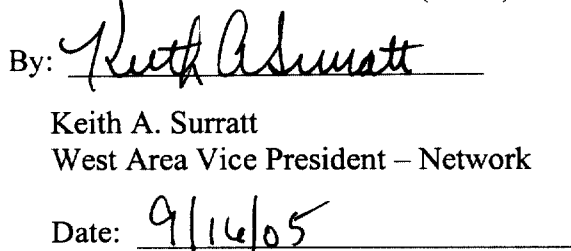 By: Keith A Surratt
Keith A. Surratt
West Area Vice President – Network
Date: 9/16/05